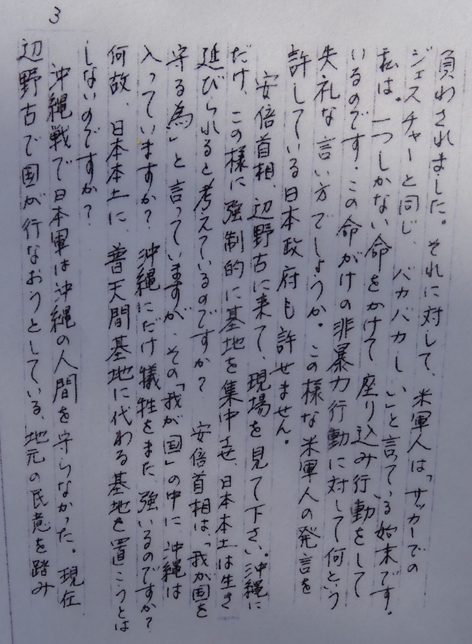 3
負わされました。それに対して、米軍人は「サッカーでの
ジェスチャーと同じ、バカバカしい」と言っている始末です。
私は。一つしかない命をかけて座り込み行動をして
いるのです。この命がけの非暴力行動に対して何という
失礼な言い方でしょうか。この様な米軍人の発言を
許している日本政府も許せません。
安倍首相、辺野古に来て、現場を見て下さい。沖縄に
だけ、この様に強制的に基地を集中させ、日本本土は生き
延びられると考えているのですか？ 安倍首相は「我が国を
守る為」と言っていますが、その「我が国」の中に沖縄は
入っていますか？ 沖縄にだけ犠牲をまた強いるのですか？
何故、日本本土に、普天間基地に代わる基地を置こうとは
しないのですか？
沖縄戦で日本軍は沖縄の人間を守らなかった。現在
辺野古で国が行なおうとしている、地元の民意を踏み